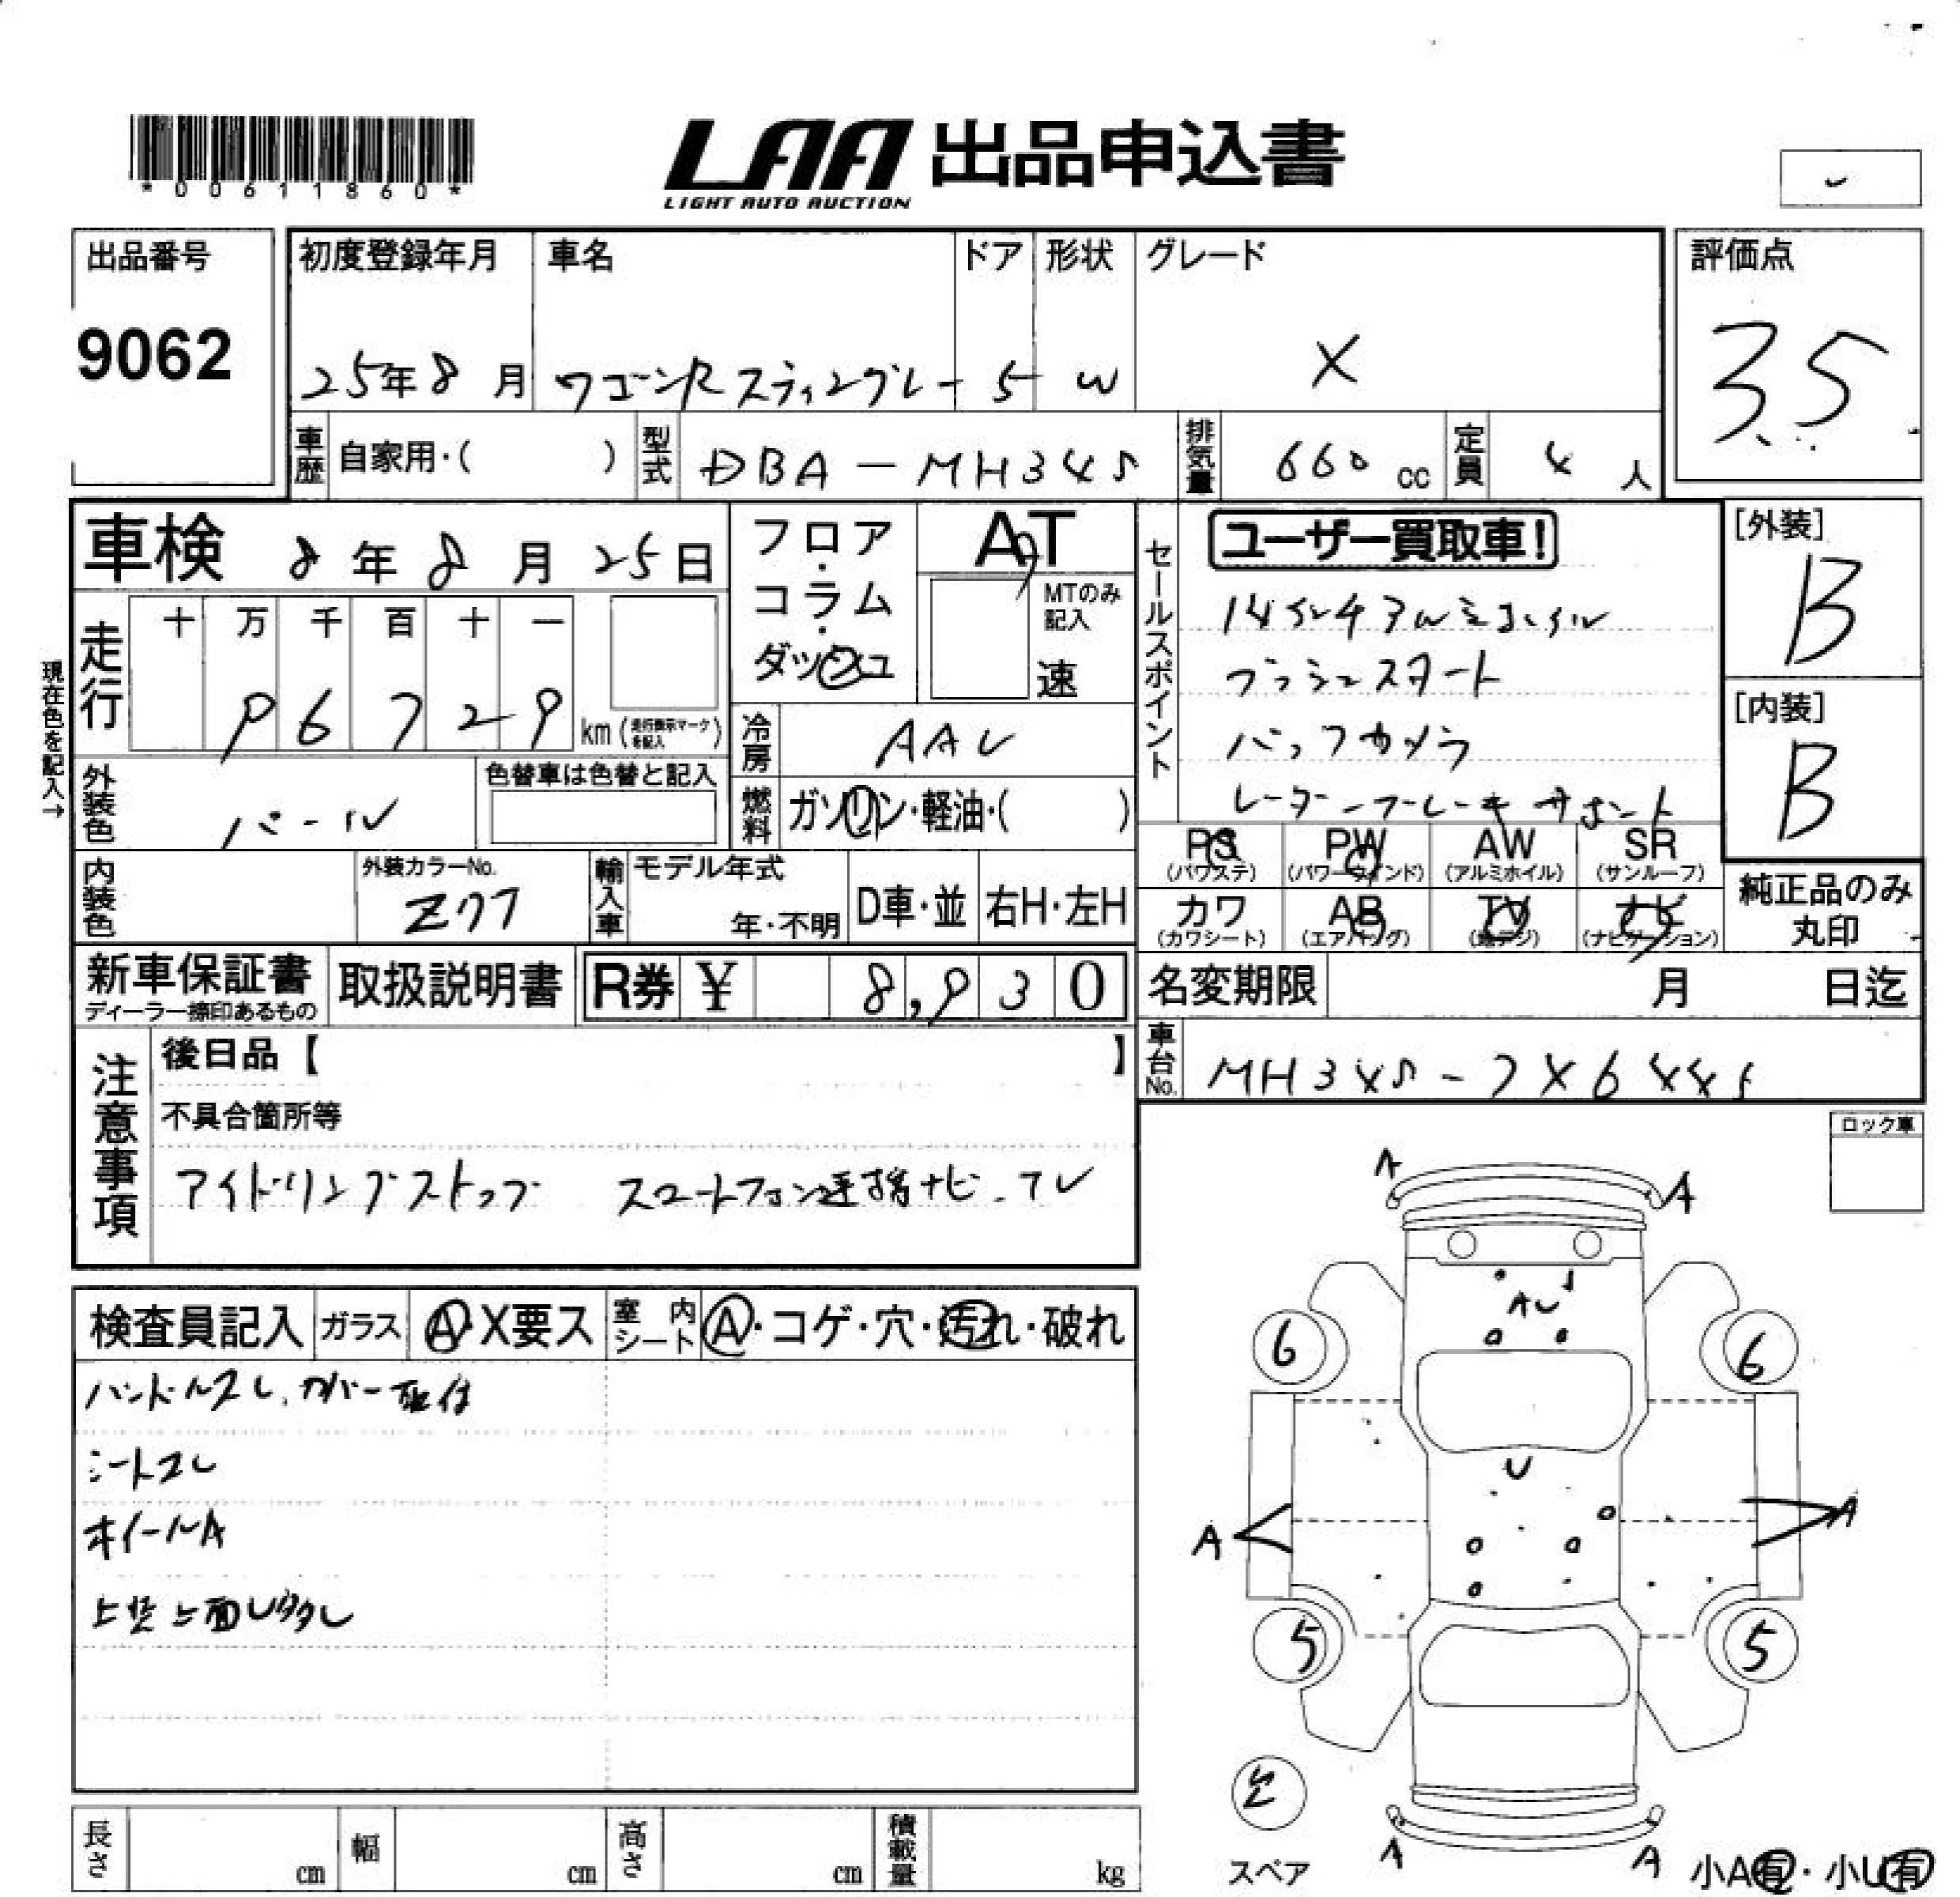 *00611860*
LAA 出品申込書
LIGHT AUTO AUCTION
出品番号
9062
初度登録年月
25年8月
車名
ワゴンRスティングレー
ドア
5
形状
W
グレード
X
評価点
3.5
車歴 自家用・( )
型式 DBA-MH34S
排気量 660 cc
定員 4 人
車検 8年8月25日
フロア・コラム・ダッシュ
AT
MTのみ記入
速
セールスポイント
ユーザー買取車!
14インチアルミホイル
プッシュスタート
バックカメラ
レーダーブレーキサポート
[外装]
B
[内装]
B
現在色を記入→
走行
十 万 千 百 十 一
9 6 7 2 9 km (走行表示マークを記入)
冷房 AAC
外装色 パール
色替車は色替と記入
燃料 ガソリン・軽油・( )
PS (パワステ)
PW (パワーウインド)
AW (アルミホイル)
SR (サンルーフ)
内装色
外装カラーNo.
Z77
輸入車 モデル年式
年・不明
D車・並
右H・左H
カワ (カワシート)
AB (エアバッグ)
TV (地デジ)
ナビ (ナビゲーション)
純正品のみ丸印
新車保証書
ディーラー捺印あるもの
取扱説明書
R券 ¥ 8,930
名変期限 月 日迄
車台No. MH34S-
注意事項
後日品【 】
不具合箇所等
アイドリングストップ スマートフォン連携ナビ・TV
ロック車
検査員記入 ガラス A・X要ス 室内シート A・コゲ・穴・汚れ・破れ
ハンドルスレ、カバー取付
シートスレ
ホイールA
A
A
AU
6
6
U
A
A
5
5
スペア
A
A
小A有・小U有
長さ cm
幅 cm
高さ cm
積載量 kg